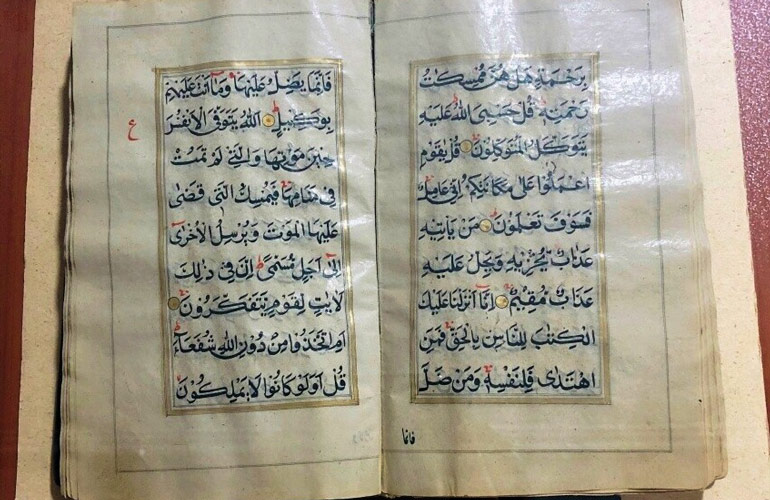 برحمة هل هن ممسكت
رحمته قل حسبى الله عليه
يتوكل المتوكلون قل يقوم
اعملوا على مكانتكم انى عامل
فسوف تعلمون من ياتيه
عذاب يخزيه ويحل عليه
عذاب مقيم انا انزلنا عليك
الكتب للناس بالحق فمن
اهتدى فلنفسه ومن ضل
فانما
فانما يضل عليها وما انت عليهم
بوكيل الله يتوفى الانفس
ع
حين موتها والتى لم تمت
فى منامها فيمسك التى قضى
عليها الموت ويرسل الاخرى
الى اجل مسمى ان فى ذلك
لايت لقوم يتفكرون
ام اتخذوا من دون الله شفعاء
قل اولو كانوا لا يملكون